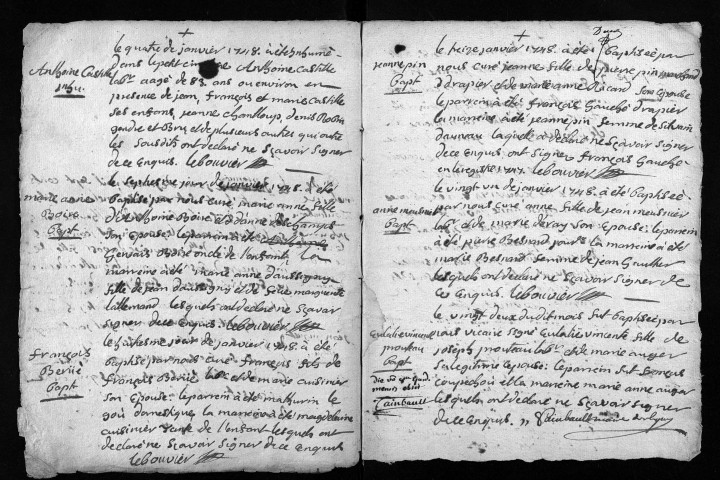 Anthoine Castille
inhu.
le quatre de janvier 1748. a été inhumé
dans le petit cimetiere Anthoine Castille
labr. aagé de 83 ans ou environ en
presence de jean, françois et marie Castille
ses enfans, jeanne Chanloup, denis Robin
gendre et Bru et de plusieurs autres qui outre
les sousdits ont declaré ne sçavoir signer
de ce Enquis. lebouvier
marie anne
Boire
Bapt
le septiesme jour de janvier 1748. a été
Baptisée par nous curé marie anne fille
de Anthoine Boire et d'anne deschamps
son Epouse le parrein a été
Gervais Boire oncle de l'enfant, la
marreine a été marie anne daussigny
fille de jean daussigny et de feüe marguerite
lallemand lesquels ont declaré ne sçavoir
signer de ce Enquis. lebouvier
françois
Beriie
Bapt
le jour de janvier 1748 a été
Baptisé par nous curé françois fils de
françois Beriie labr. et de marie cuisinier
son Epouse le parrein a été mathurin le
goû domestique la marreine a été magdelaine
cuisinier tante de l'enfant lesquels ont
declaré ne sçavoir signer de ce Enquis
lebouvier
jeanne pin
Bapt
le seize janvier 1748. a été Baptisée par
nous curé jeanne fille de pierre pin marchand
drapier et de marie anne Ricard son Epouse
le parrein a été françois Gauché drapier
la marreine a été jeanne pin femme de silvain
dauneau laquelle a déclaré ne sçavoir signer
de ce Enquis. ont signé françois Gauché
lebouvier
anne meusnier
Bapt
le vingt un de janvier 1748. a été Baptisée
par nous curé anne fille de jean meusnier
labr. et de marie deray son Epouse le parrein
a été pierre Besnard la marreine a été
marie Besnard femme de jean Gaultier
lesquels ont declaré ne sçavoir signer de
ce Enquis. lebouvier
Eulalie vincente
mouteau
Bapt
Rainbault
le vingt deux dudit mois fut Baptisée par
nous vicaire signé Eulalie vincente fille de
joseph mouteau labr. et de marie auger
sa legitime Epouse: le parrein fut
et la marreine marie anne auger
lesquels ont declaré ne sçavoir signer
de ce Enquis. Rainbault